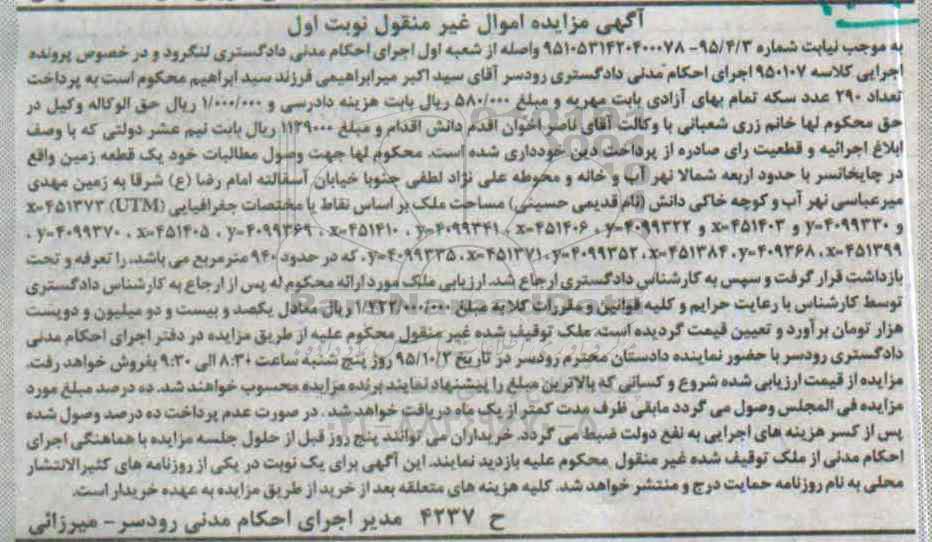 آگهی مزایده اموال غیر منقول نوبت اول
به موجب نیابت شماره ۹۵/۴/۳- ۹۵۱۰۵۳۱۴۲۰۴۰۰۰۷۸ واصله از شعبه اول اجرای احکام مدنی دادگستری لنگرود و در خصوص پرونده
اجرایی کلاسه ۹۵۰۱۰۷ اجرای احکام مدنی دادگستری رودسر آقای سید اکبر میرابراهیمی فرزند سید ابراهیم محکوم است به پرداخت
تعداد ۲۹۰ عدد سکه تمام بهای آزادی بابت مهریه و مبلغ ۵۸۰/۰۰۰ ریال بابت هزینه دادرسی و ۱/۰۰۰/۰۰۰ ریال حق الوکاله وکیل در
حق محکوم لها خانم زری شعبانی با وکالت آقای ناصر اخوان اقدم دانش اقدام و مبلغ ۱۱۳۹۰۰۰ ریال بابت نیم عشر دولتی که با وصف
ابلاغ اجرائیه و قطعیت رای صادره از پرداخت دین خودداری شده است. محکوم لها جهت وصول مطالبات خود یک قطعه زمین واقع
در چایخانسر با حدود اربعه شمالا نهر آب و خانه و محوطه علی نژاد لطفی جنوبا خیابان آسفالته امام رضا (ع) شرقا به زمین مهدی
میرعباسی نهر آب و کوچه خاکی دانش (نام قدیمی حسینی) مساحت ملک بر اساس نقاط با مختصات جغرافیایی (UTM) x=۴۵۱۳۷۳
و y=۴۰۹۹۳۳۰ و x=۴۵۱۴۰۳ و y=۴۰۹۹۳۲۲ ، x=۴۵۱۴۰۶ ، y=۴۰۹۹۳۴۱ ، x=۴۵۱۴۱۰ ، y=۴۰۹۹۳۶۹ ، x=۴۵۱۴۰۵ ، y=۴۰۹۹۳۷۰ ،
x=۴۵۱۳۹۹ ،y=۴۰۹۳۶۸ ،x=۴۵۱۳۸۴ ،y=۴۰۹۹۳۵۲ ،x=۴۵۱۳۷۱ ،y=۴۰۹۹۳۳۵ ، که در حدود ۹۴۰ مترمربع می باشد، را تعرفه و تحت
بازداشت قرار گرفت و سپس به کارشناس دادگستری ارجاع شد. ارزیابی ملک مورد ارائه محکوم له پس از ارجاع به کارشناس دادگستری
توسط کارشناس با رعایت حرایم و کلیه قوانین و مقررات کلا به مبلغ ۱/۲۲۲/۰۰۰/۰۰۰ ریال معادل یکصد و بیست و دو میلیون و دویست
هزار تومان برآورد و تعیین قیمت گردیده است. ملک توقیف شده غیر منقول محکوم علیه از طریق مزایده در دفتر اجرای احکام مدنی
دادگستری رودسر با حضور نماینده دادستان محترم رودسر در تاریخ ۹۵/۱۰/۲ روز پنج شنبه ساعت ۸:۳۰ الی ۹:۳۰ بفروش خواهد رفت.
مزایده از قیمت ارزیابی شده شروع و کسانی که بالاترین مبلغ را پیشنهاد نمایند برنده مزایده محسوب خواهند شد. ده درصد مبلغ مورد
مزایده فی المجلس وصول می گردد مابقی ظرف مدت کمتر از یک ماه دریافت خواهد شد . در صورت عدم پرداخت ده درصد وصول شده
پس از کسر هزینه های اجرایی به نفع دولت ضبط می گردد. خریداران می توانند پنج روز قبل از حلول جلسه مزایده با هماهنگی اجرای
احکام مدنی از ملک توقیف شده غیر منقول محکوم علیه بازدید نمایند. این آگهی برای یک نوبت در یکی از روزنامه های کثیرالانتشار
محلی به نام روزنامه حمایت درج و منتشر خواهد شد. کلیه هزینه های متعلقه بعد از خرید از طریق مزایده به عهده خریدار است.
ح ۴۲۳۷ مدیر اجرای احکام مدنی رودسر - میرزائی